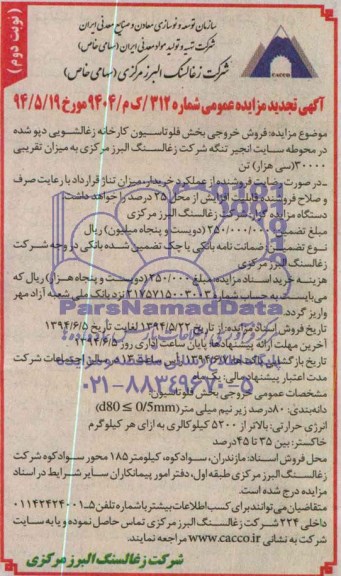 (نوبت دوم)
سازمان توسعه و نوسازی معادن و صنایع معدنی ایران
شرکت تهیه و تولید مواد معدنی ایران (سهامی خاص)
شرکت زغالسنگ البرز مرکزی (سهامی خاص)
CACCO
آگهی تجدید مزایده عمومی شماره ۳۱۲/ک م/۹۴۰۴ مورخ ۹۴/۵/۱۹
موضوع مزایده: فروش خروجی بخش فلوتاسیون کارخانه زغالشویی دپو شده
در محوطه سایت انجیر تنگه شرکت زغالسنگ البرز مرکزی به میزان تقریبی
۳۰۰۰۰(سی هزار) تن
ـ در صورت رضایت فروشنده از عملکرد خریدار، میزان تناژ قرارداد با رعایت صرف
و صلاح فروشنده قابلیت افزایش از محل ۲۵ درصد را خواهد داشت.
دستگاه مزایده گزار: شرکت زغالسنگ البرز مرکزی
مبلغ تضمین: ۲۵۰/۰۰۰/۰۰۰ (دویست و پنجاه میلیون) ریال
نوع تضمین: ضمانت نامه بانکی یا چک تضمین شده بانکی در وجه شرکت
زغالسنگ البرز مرکزی
هزینه خرید اسناد مزایده: مبلغ ۲۵۰/۰۰۰ (دویست و پنجاه هزار) ریال که
می‌بایست به حساب شماره ۲۱۷۵۷۱۵۰۰۳۰۰۳ نزد بانک ملی شعبه آزادمهر
واریز گردد.
تاریخ فروش اسناد مزایده: از تاریخ ۱۳۹۴/۵/۲۲ لغایت تاریخ ۱۳۹۴/۶/۵
آخرین مهلت ارائه پیشنهادها: پایان ساعت اداری روز ۱۳۹۴/۶/۵
تاریخ بازگشایی پاکات: ۱۳۹۴/۶/۷ رأس ساعت ۱۳ در سالن اجتماعات شرکت
مدت اعتبار پیشنهاد مالی: یک ماه
مشخصات عمومی خروجی بخش فلوتاسیون:
دانه‌بندی: ۸۰ درصد زیر نیم میلی متر (d80 ≤ 0/5mm)
انرژی حرارتی: بالاتر از ۵۲۰۰ کیلوکالری به ازای هر کیلوگرم
خاکستر: بین ۳۵ تا ۴۵ درصد
محل فروش اسناد: مازندران، سوادکوه، کیلومتر ۱۸۵ محور سوادکوه شرکت
زغالسنگ البرز مرکزی طبقه اول، دفتر امور پیمانکاران سایر شرایط در اسناد
مزایده درج شده است.
متقاضیان می‌توانند برای کسب اطلاعات بیشتر با شماره تلفن ۵ـ۰۱۱۴۲۴۲۴۰۰۱
داخلی ۲۲۴ شرکت زغالسنگ البرز مرکزی تماس حاصل نموده و یا به سایت
شرکت به نشانی www.cacco.ir مراجعه نمایند.
شرکت زغالسنگ البرز مرکزی
ParsNamadData
۰۲۱-۸۸۳۴۹۶۷۰-۵